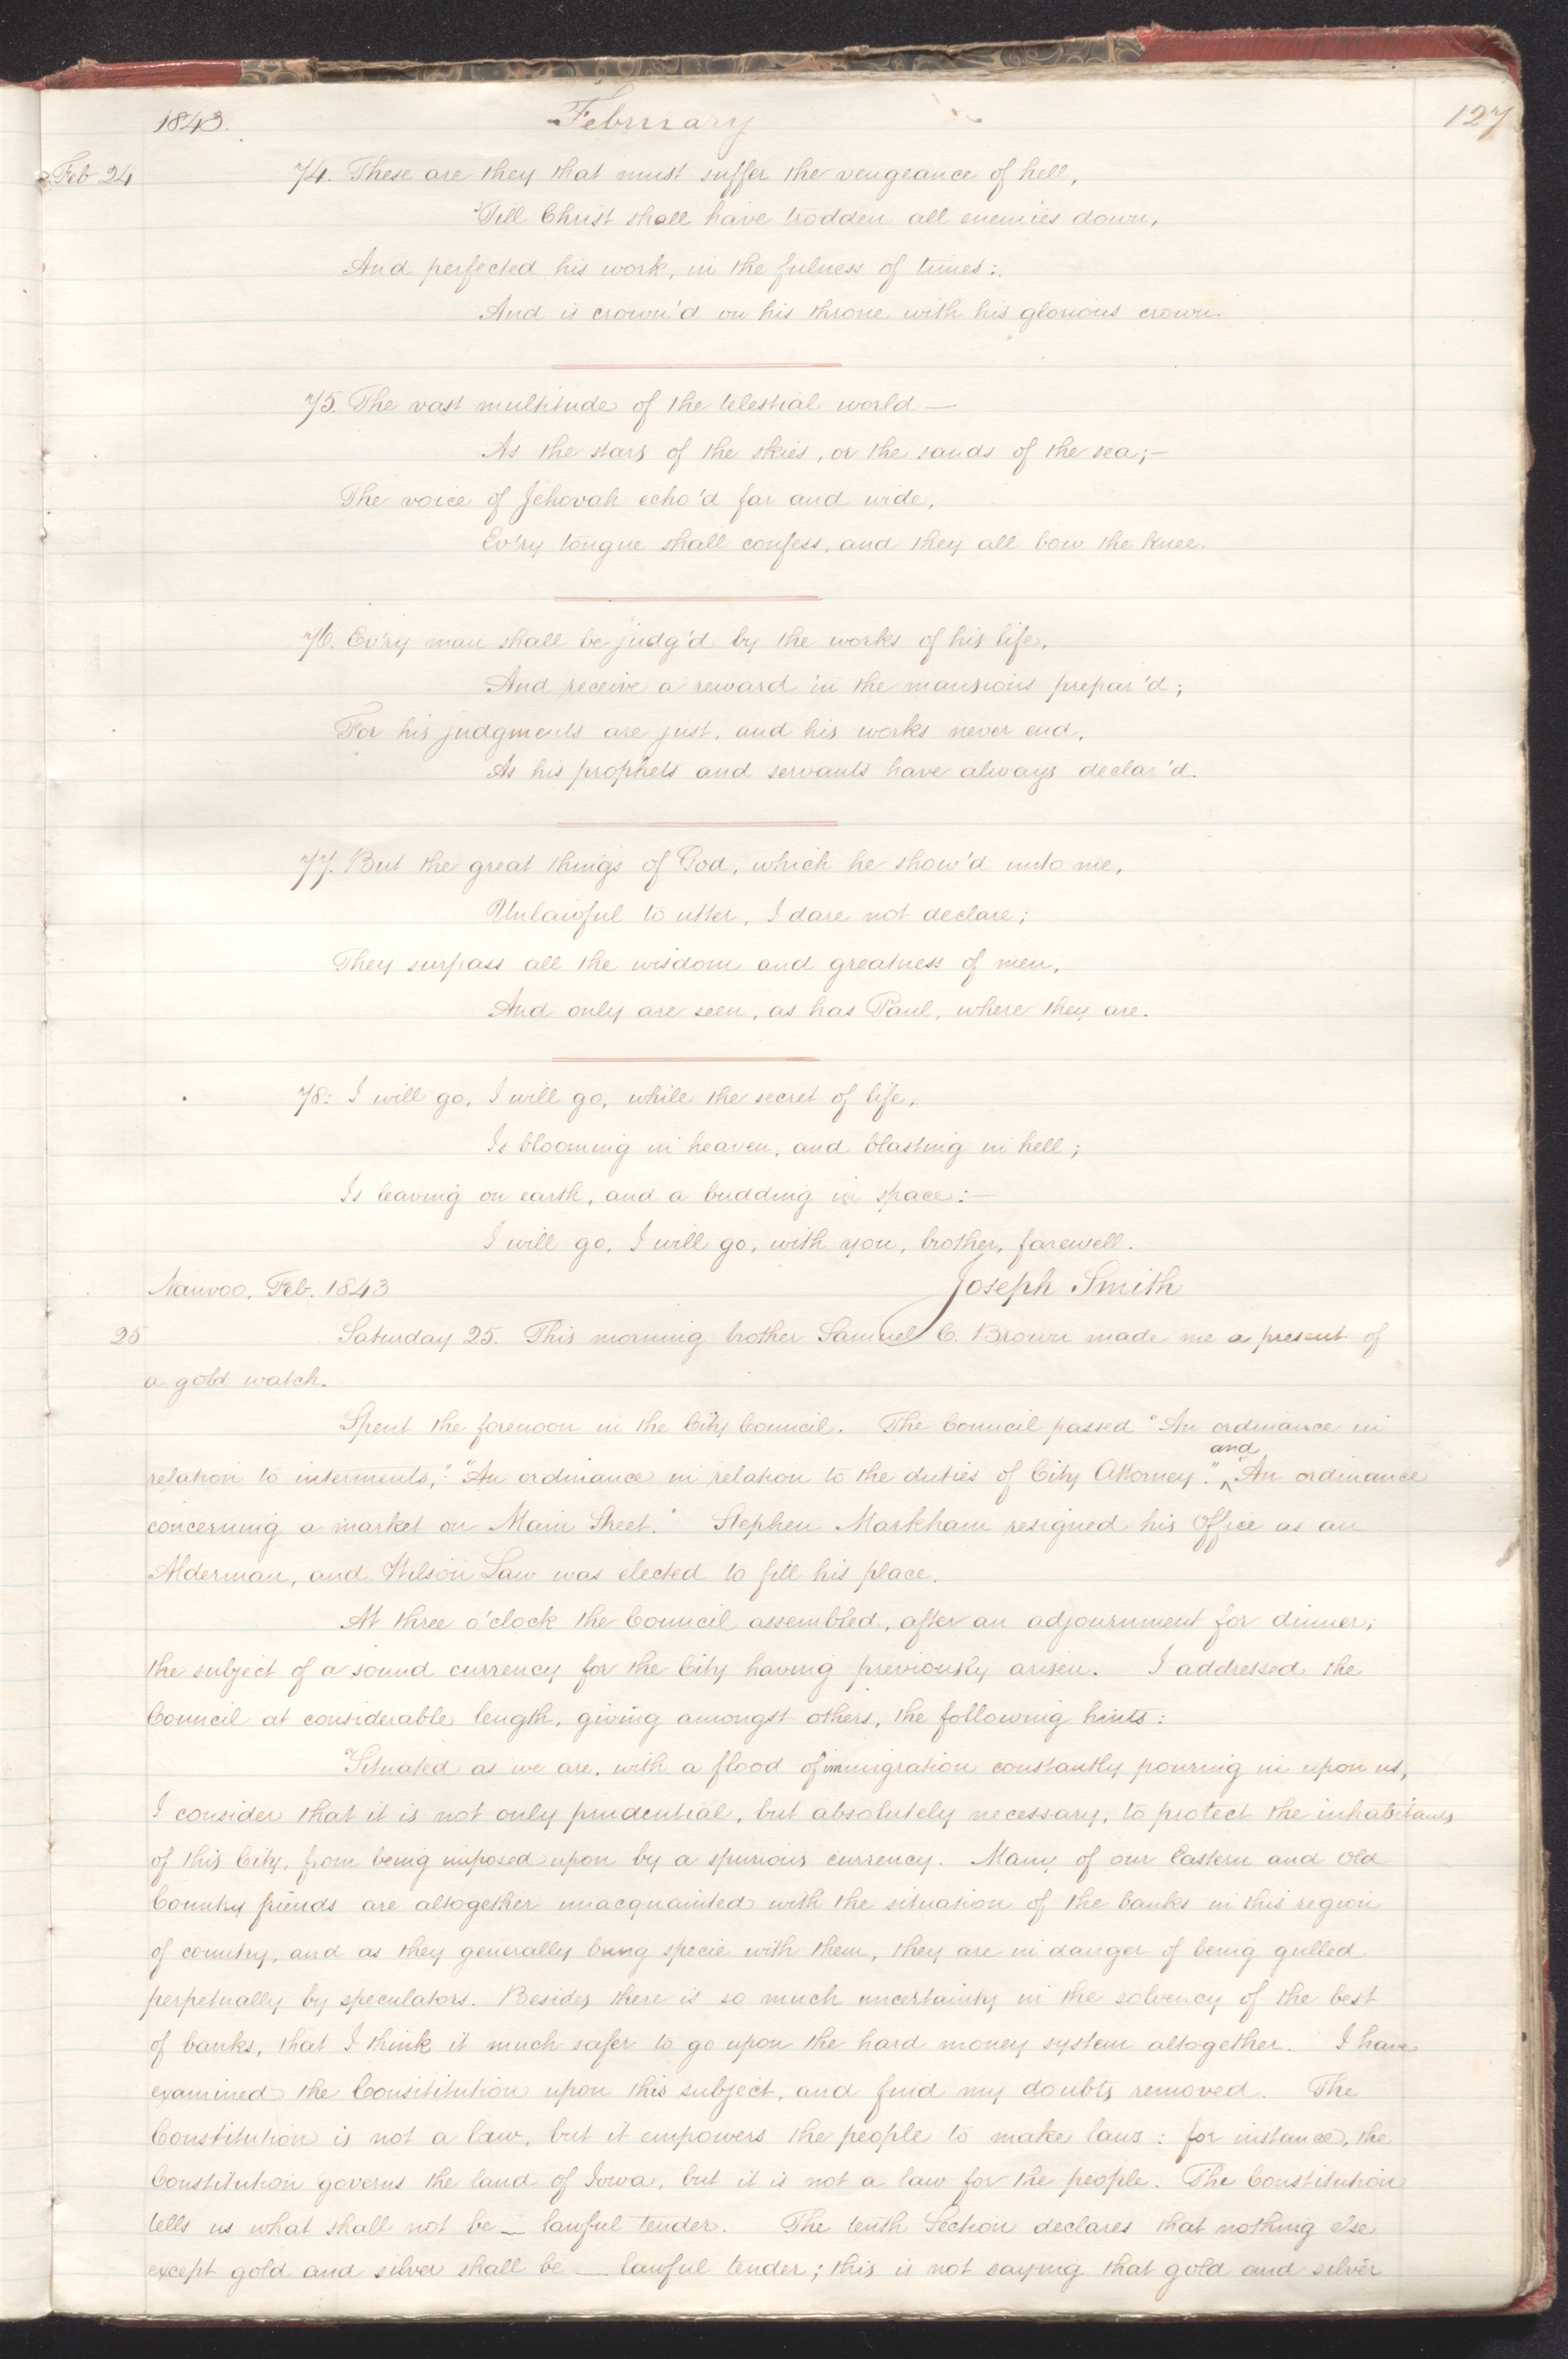 1843. February 127
Feb 24 74. These are they that must suffer the vengeance of hell,
'Till Christ shall have trodden all enemies down,
And perfected his work, in the fulness of times:
And is crown'd on his throne with his glorious crown.
75. The vast multitude of the telestial world —
As the stars of the skies, or the sands of the sea;—
The voice of Jehovah echo'd far and wide,
Ev'ry tongue shall confess, and they all bow the knee.
76. Ev'ry man shall be judg'd by the works of his life,
And receive a reward in the mansions prepar'd;
For his judgments are just, and his works never end,
As his prophets and servants have always declar'd.
77. But the great things of God, which he show'd unto me,
Unlawful to utter, I dare not declare;
They surpass all the wisdom and greatness of men,
And only are seen, as has Paul, where they are.
78: I will go, I will go, while the secret of life,
Is blooming in heaven, and blasting in hell;
Is leaving on earth, and a budding in space:—
I will go, I will go, with you, brother, farewell.
Nauvoo, Feb. 1843 Joseph Smith
25 Saturday 25. This morning brother Samuel C. Brown made me a present of
a gold watch.
Spent the forenoon in the City Council. The Council passed "An ordinance in
and
relation to interments," "An ordinance in relation to the duties of City Attorney." ^ "An ordinance
concerning a market on Main Street." Stephen Markham resigned his Office as an
Alderman, and Wilson Law was elected to fill his place.
At three o'clock the Council assembled, after an adjournment for dinner;
the subject of a sound currency for the City having previously arisen. I addressed the
Council at considerable length, giving amongst others, the following hints:
"Situated as we are, with a flood of immigration constantly pouring in upon us,
I consider that it is not only prudential, but absolutely necessary, to protect the inhabitants
of this City, from being imposed upon by a spurious currency. Many of our Eastern and Old
Country friends are altogether unacquainted with the situation of the banks in this region
of country, and as they generally bring specie with them, they are in danger of being gulled
perpetually by speculators. Besides there is so much uncertainty in the solvency of the best
of banks, that I think it much safer to go upon the hard money system altogether. I have
examined the Consititution upon this subject, and find my doubts removed. The
Constitution is not a law, but it empowers the people to make laws: for instance, the
Constitution governs the land of Iowa, but it is not a law for the people. The Constitution
tells us what shall not be _ lawful tender. The tenth Section declares that nothing else
except gold and silver shall be _ lawful tender; this is not saying that gold and silver